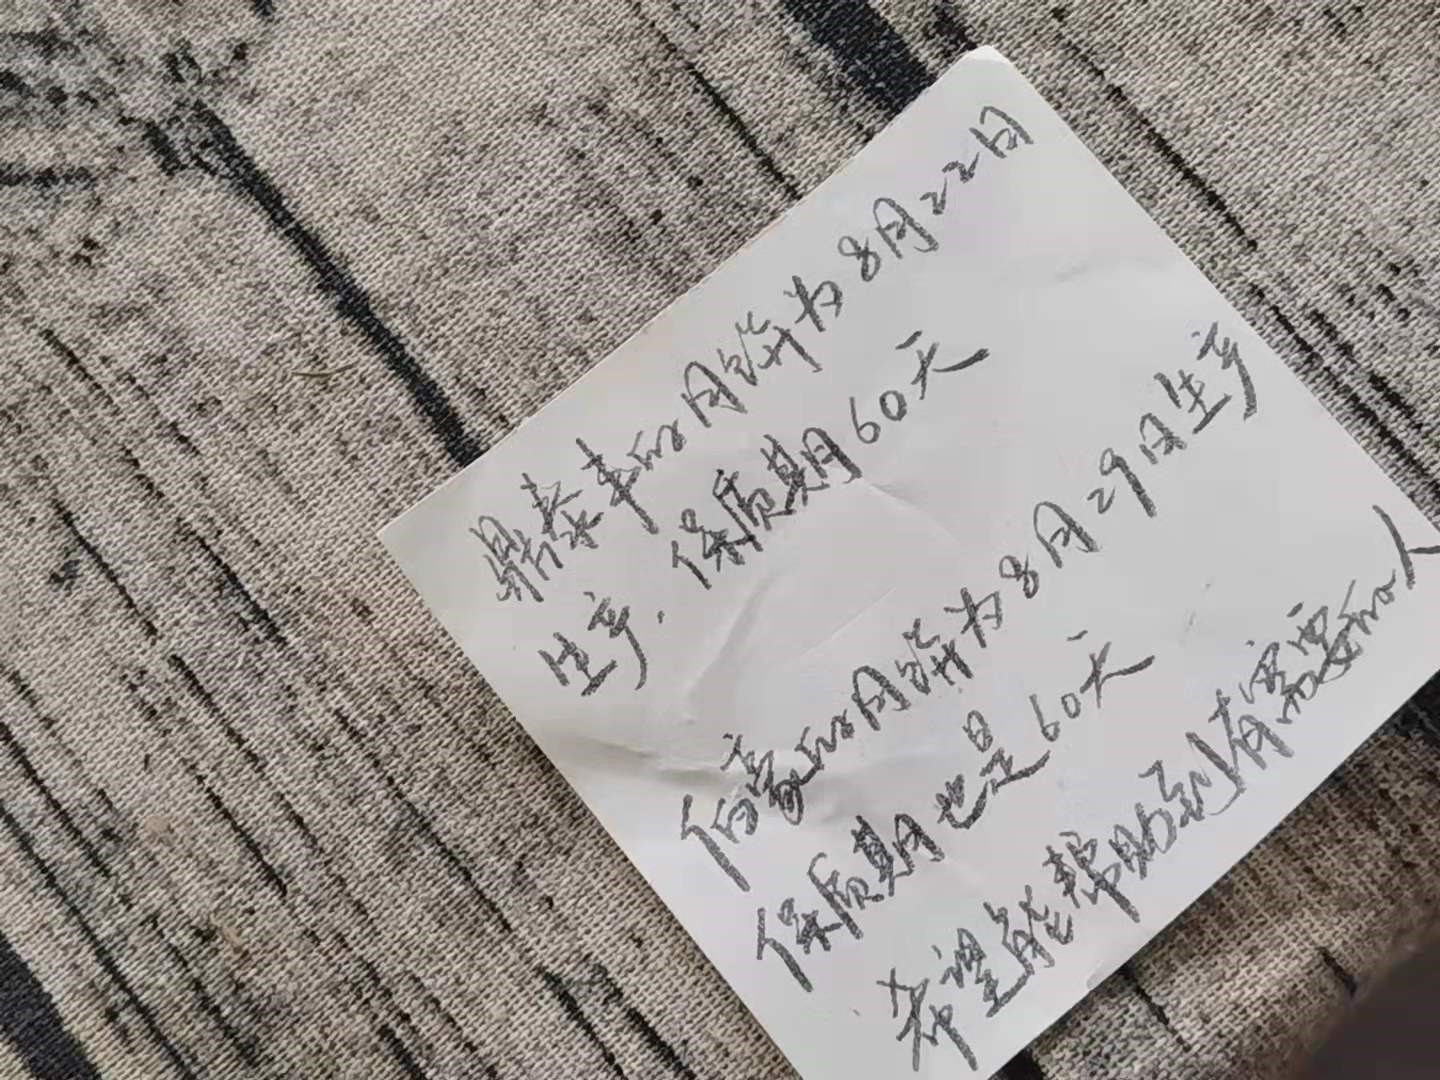 鼎泰丰的月饼为8月22日
生产.保质期60天
伯豪的月饼为8月29日生产
保质期也是60天
希望能帮助到有需要的人